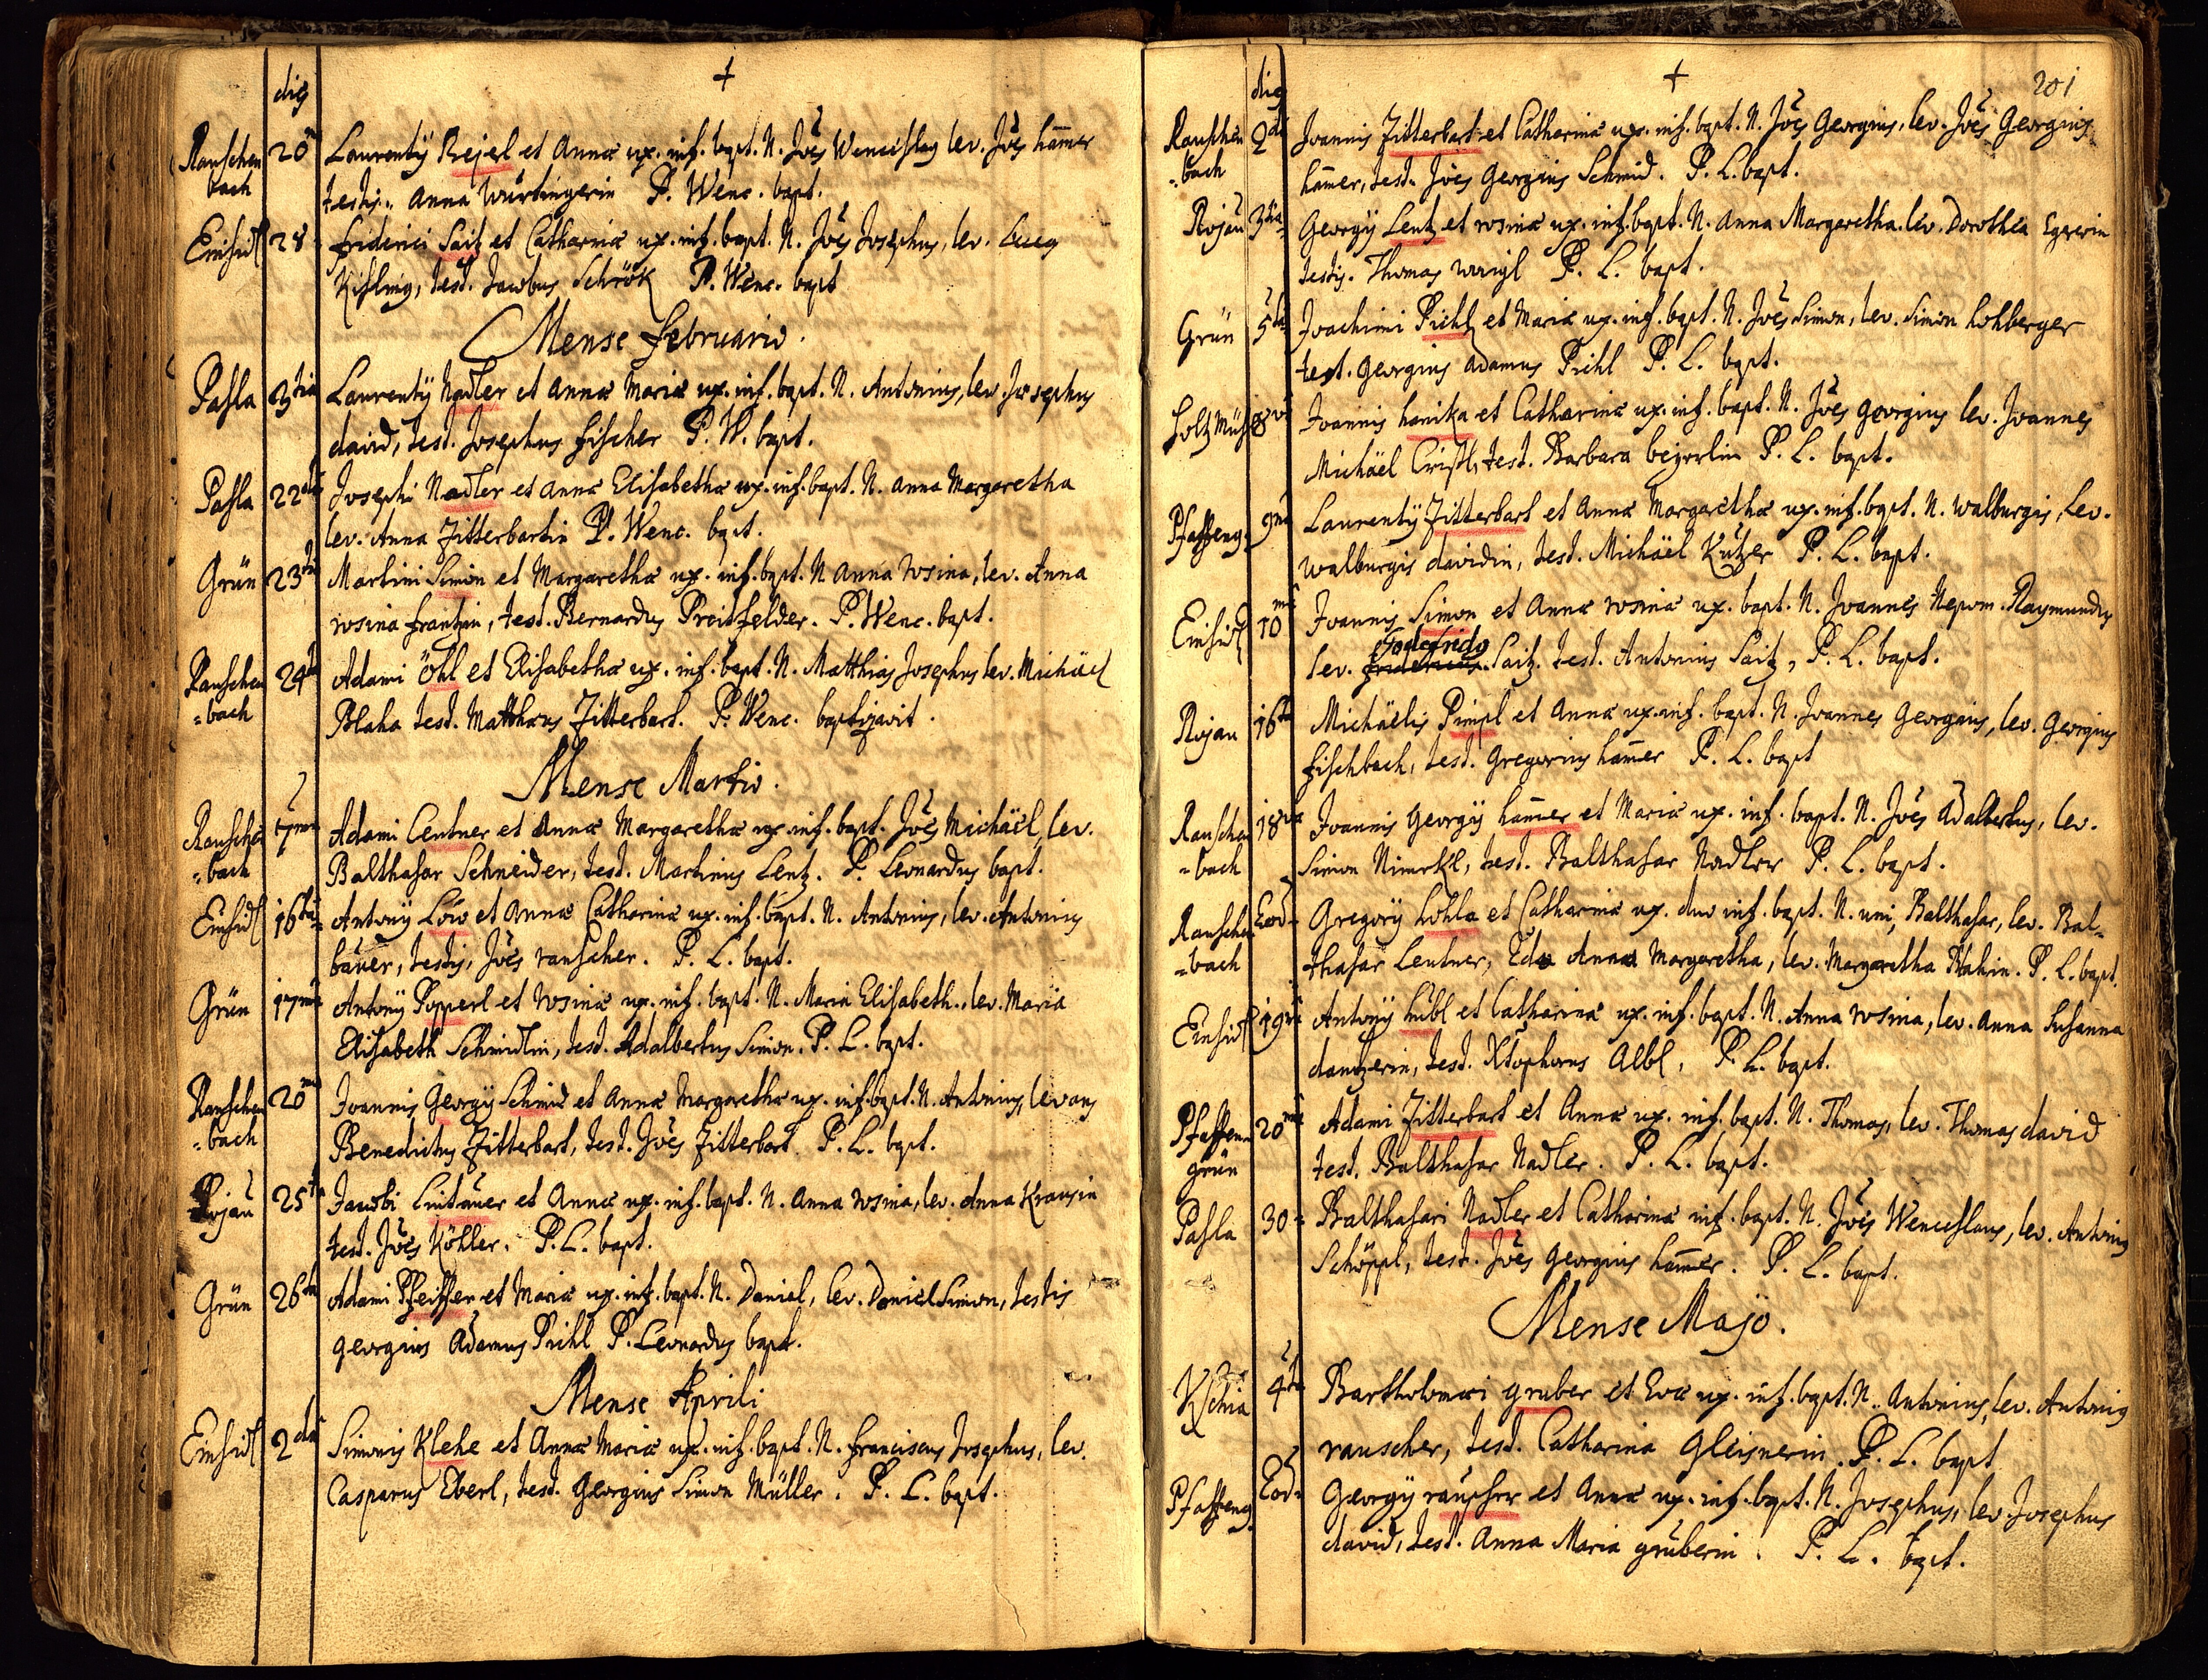 +
dies
Rauschen 20ma Laurentÿ Rejerl et Annæ ux. inf. bapt. N. Joēs Wenceslaus lev. Joēs ham̄er
bach testis. Anna Würtingerin P. Wenc. bapt.
Einsidl 28 friderici Saitz et Catharinæ ux. inf. bapt. N. Joēs Josephus, lev.
Kissling, test. Jacobus Schrök P. Wenc. bapt
Mense februario.
Paslа 3tia Laurentÿ Nadler et Annæ Mariæ ux. inf. bapt. N. Antonius, lev. Josephus
david, test. Josephus fischer P. W. bapt.
Pasla 22da Josephi Nadler et Annæ Elisabethæ ux. inf. bapt. N. Anna Margaretha
lev. Anna Zitterbartin P. Wenc. bapt.
Grün 23tia Martini Simon et Margarethæ ux. inf. bapt. N Anna rosina, lev. Anna
rosina frantzin, test. Bernardus Proitfelder. P. Wenc. bapt.
Rauschen 24ta Adami Öhl et Elisabethæ ux. inf. bapt. N. Matthias Josephus lev. Michäel
=bach Blaha test. Matthæus Zitterbart. P. Wenc. baptizavit.
Mense Martio.
Rauschen 7ma Adami Centner et Annæ Margarethæ ux. inf. bapt. Joēs Michäel, lev.
=bach Balthasar Schneider, test. Martinus Lentz. P. Leonardus bapt.
Einsidl 16ta Antonÿ Löw et Annæ Catharinæ ux. inf. bapt. N. Antonius, lev. Antonius
baüer, testis, Joēs rauscher. P. L. bapt.
Grün 17ma Antonÿ Popperl et rosinæ ux. inf. bapt. N. Maria Elisabeth. lev. Maria
Elisabeth Schmidlin, test. Adalbertus Simon. P. L. bapt.
Rauschen 20ma Joannis Georgÿ Schmid et Annæ Margarethæ ux. inf. bapt. N. Antonius, levans
=bach Benedictus Zitterbart, test. Joēs Zitterbart. P. L. bapt.
Rojau 25ta Jacobi Lintauer et Annæ ux. inf. bapt. N. Anna rosina, lev. Anna Krausin
test. Joēs Köhler. P. L. bapt.
Grün 26ta Adami Pfeiffer et Mariæ ux. inf. bapt. N. Daniel, lev. Daniel Simon, testis
georgius Adamus Pichl P. Leonardus bapt.
Mense Aprili
Einsidl 2da Simonis Klehe et Annæ Mariæ ux. inf. bapt. N. franciscus Josephus, lev.
Casparus Eberl, test. Georgius Simon Müller. P. L. bapt.
+
201
dies
Rauschen 2da Joannis Zitterbart et Catharinæ ux. inf. bapt. N. Joēs Georgius, lev. Joēs Georgius
=bach ham̄er, test. Joēs Georgius Schmid. P. L. bapt.
Rojau 3tia Georgÿ Lentz et rosinæ ux. inf. bapt. N. Anna Margaretha. lev. Dorothea Egererin
testis. Thomas waigl P. L. bapt.
Grün 5ta Joachimi Pichl et Mariæ ux. inf. bapt. N. Joēs Simon, lev. Simon Lohberger
test. georgius Adamus Pichl P. L. bapt.
Holtzmühl 8va Joannis hanika et Catharinæ ux. inf. bapt. N. Joēs georgius lev. Joannes
Michäel Cristl, test. Barbara bejerlin P. L. bapt.
Pfaffeng. 9na Laurentÿ Zitterbart et Annæ Margarethæ ux. inf. bapt. N. walburgis, lev.
walburgis davidin, test. Michäel Kutzer P. L. bapt.
Einsidl 10ma Joannis Simon et Annæ rosinæ ux. bapt. N. Joannes Nepom. Raymundus
Godefrido
lev. fridericus Saitz. test. Antonius Saitz, P. L. bapt.
Rojau 16ta Michäelis Pimpl et Annæ ux. inf. bapt. N. Joannes Georgius, lev. Georgius
fischbach, test. Gregorius ham̄er P. L. bapt
Rauschen 18va Joannis Georgÿ ham̄er et Mariæ ux. inf. bapt. N. Joēs Adalbertus, lev.
=bach Simon Nimrkl, test. Balthasar Nadler P. L. bapt.
Rauschen Eod= Gregorÿ hohla et Catharinæ ux. duo inf. bapt. N. uni, Balthasar, lev. Bal=
=bach thasar Centner, 2da Anna Margaretha, lev. Margaretha Blahin. P. L. bapt.
Einsidl 19na Antonÿ hübl et Catharinæ ux. inf. bapt. N. Anna rosina, lev. Anna Susanna
dantzerin, test. Xtophorus Albl, P. L. bapt.
Pfaffen= 20ma Adami Zitterbart et Annæ ux. inf. bapt. N. Thomas, lev. Thomas david
grün test. Balthasar Nadler. P. L. bapt.
Pasla 30= Balthasari Nadler et Catharinæ inf. bapt. N. Joēs Wenceslaus, lev. Antonius
Schöppl, test. Joēs Georgius ham̄er. P. L. bapt.
Mense Majo.
4ta Bartholomæi gruber et Evæ ux. inf. bapt. N. Antonius, lev. Antonius
rauscher, test. Catharina Gleisnerin. P. L. bapt
Pfaffeng. Eod= Georgÿ rauscher et Annæ ux. inf. bapt. N. Josephus, lev. Josephus
david, test. Anna Maria gruberin. P. L. bapt.